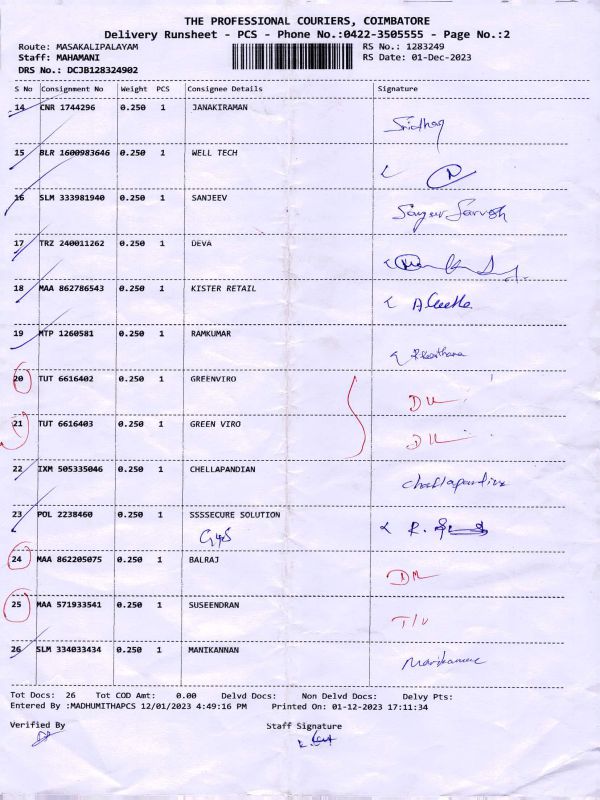 THE PROFESSIONAL COURIERS, COIMBATORE
Delivery Runsheet - PCS - Phone No.:0422-3505555 - Page No.:2
Route: MASAKALIPALAYAM RS No.: 1283249
Staff: MAHAMANI RS Date: 01-Dec-2023
DRS No.: DCJB128324902
S No Consignment No Weight PCS Consignee Details Signature
14 CNR 1744296 0.250 1 JANAKIRAMAN
Sridhar
15 BLR 1600983646 0.250 1 WELL TECH
16 SLM 333981940 0.250 1 SANJEEV
17 TRZ 240011262 0.250 1 DEVA
18 MAA 862786543 0.250 1 KISTER RETAIL
19 MTP 1260581 0.250 1 RAMKUMAR
20 TUT 6616402 0.250 1 GREENVIRO
21 TUT 6616403 0.250 1 GREEN VIRO
22 IXM 505335046 0.250 1 CHELLAPANDIAN
23 POL 2238460 0.250 1 SSSSECURE SOLUTION
24 MAA 862205075 0.250 1 BALRAJ
25 MAA 571933541 0.250 1 SUSEENDRAN
26 SLM 334033434 0.250 1 MANIKANNAN
Tot Docs: 26 Tot COD Amt: 0.00 Delvd Docs: Non Delvd Docs: Delvy Pts:
Entered By :MADHUMITHAPCS 12/01/2023 4:49:16 PM Printed On: 01-12-2023 17:11:34
Verified By Staff Signature